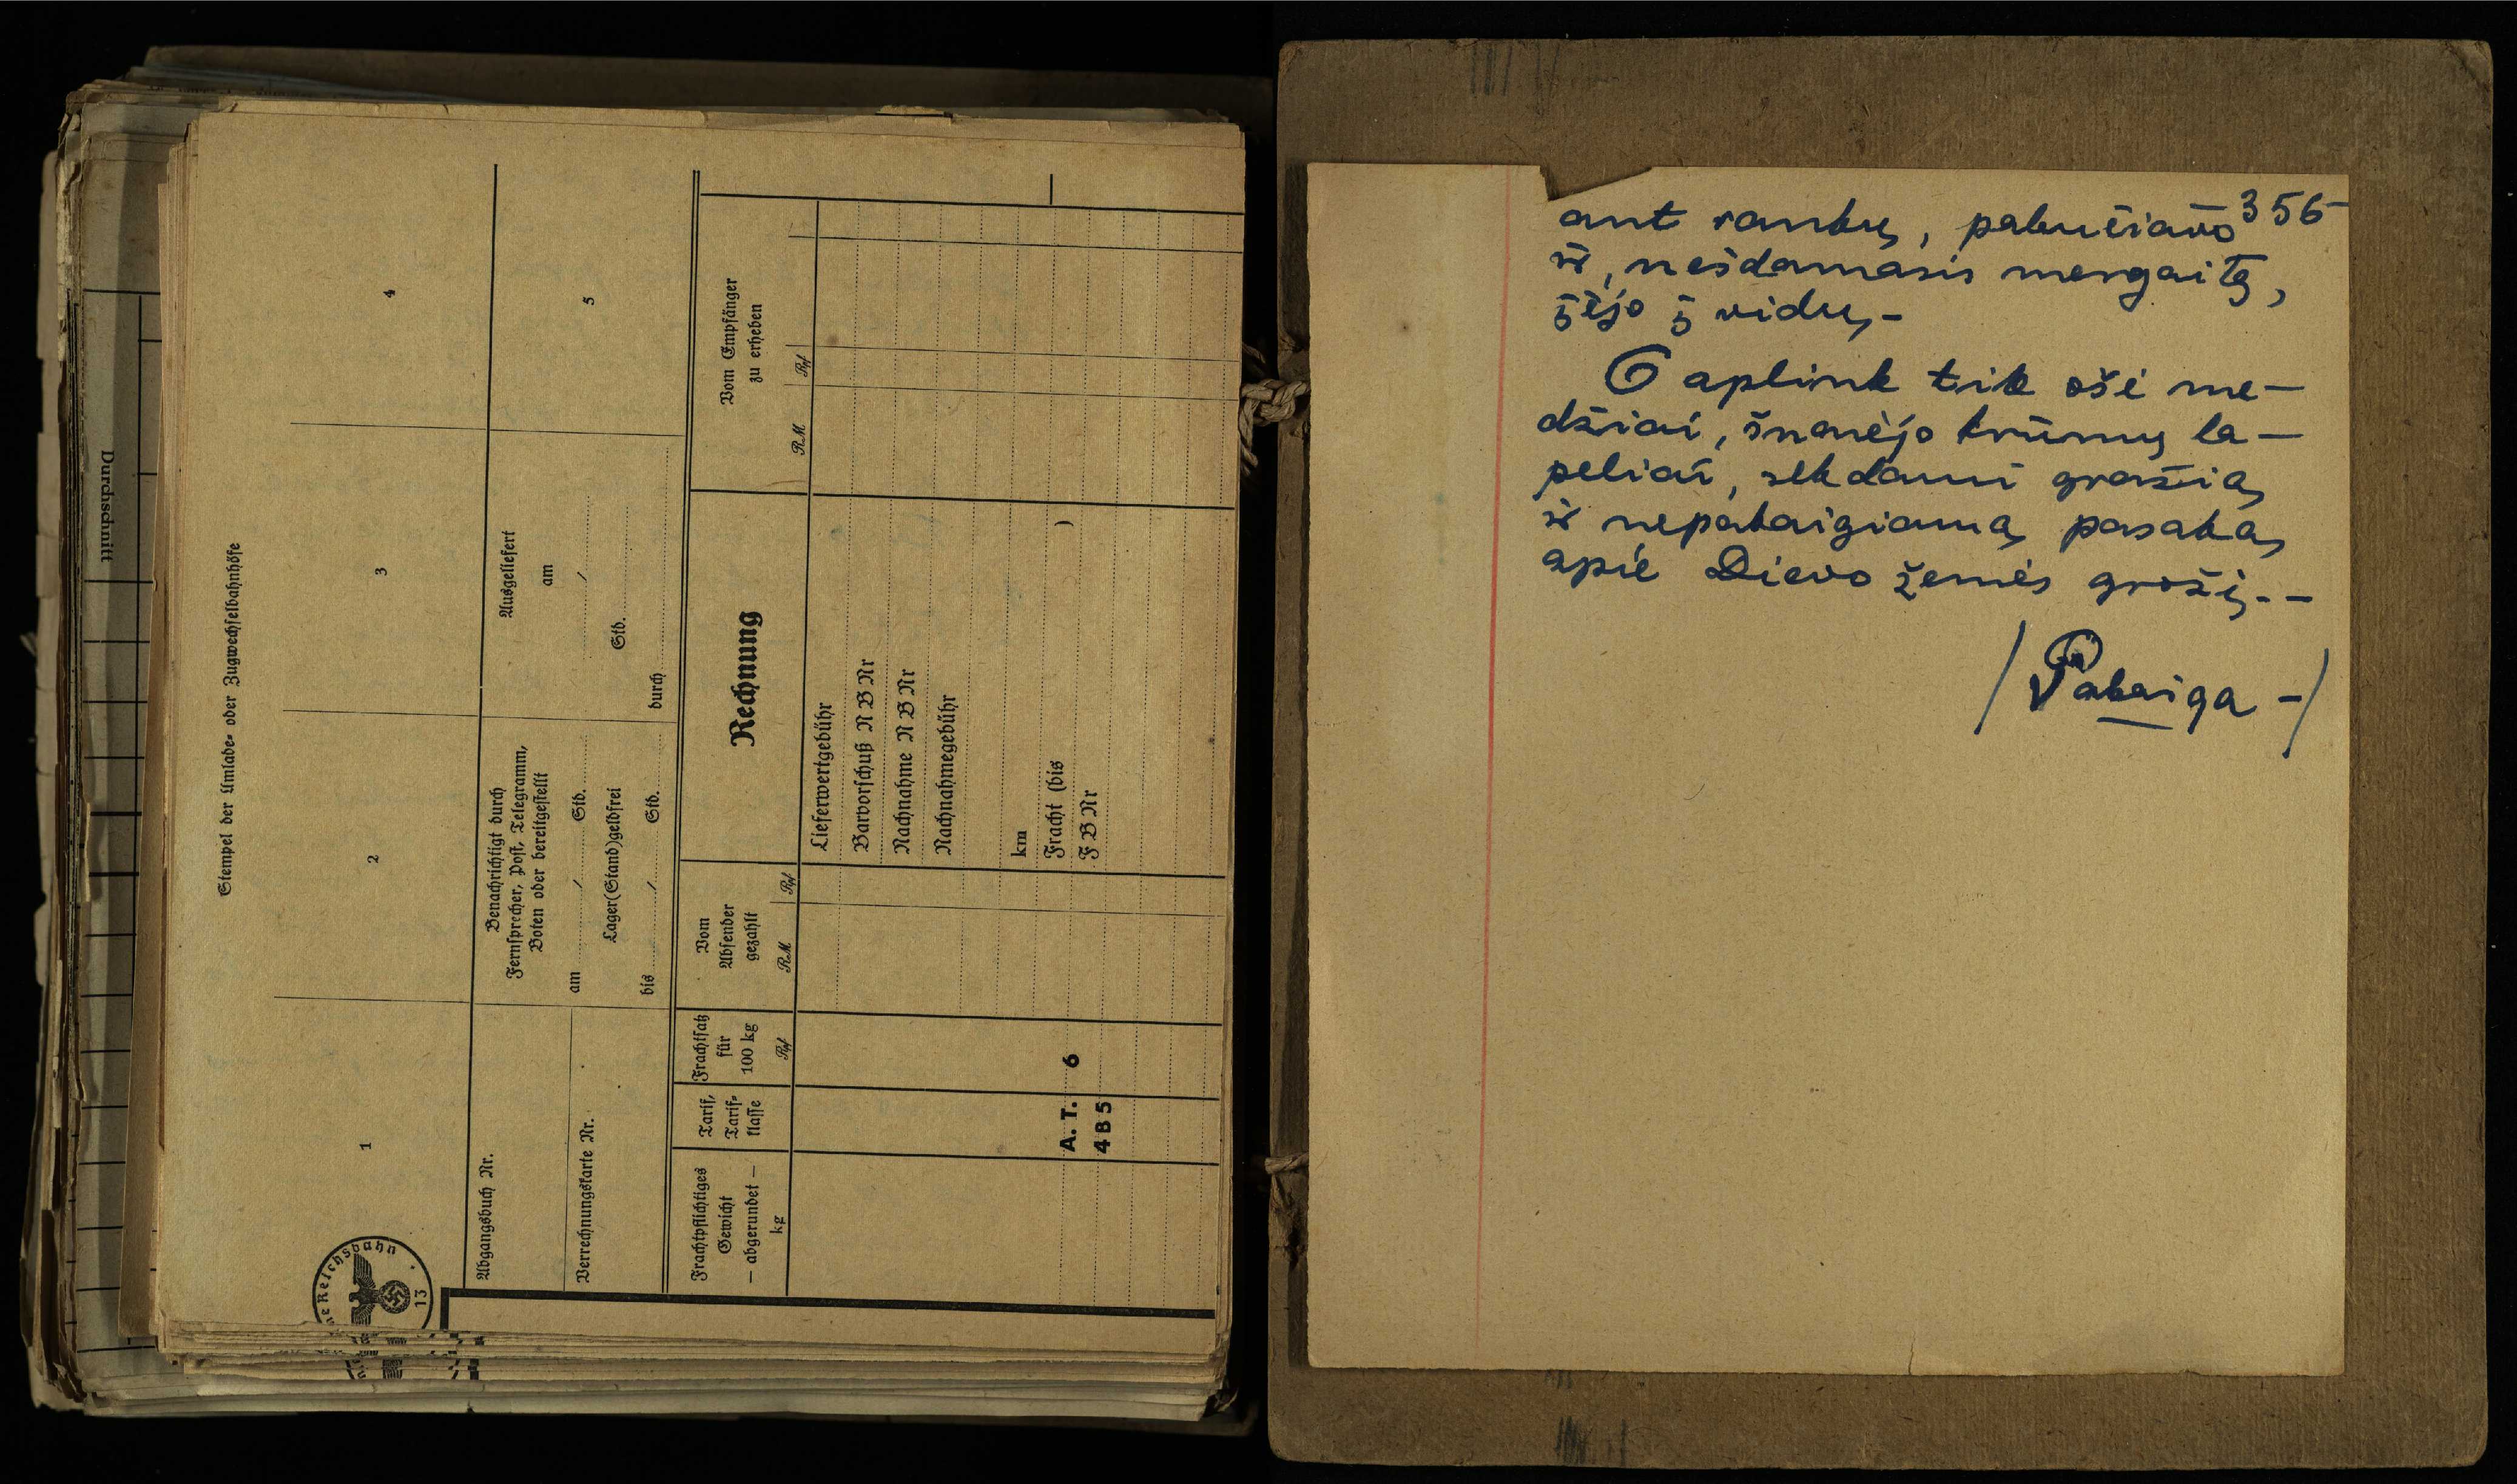 Durchschnitt
Stempel der Umlade- oder Zugwechselbahnhöfe
1
2
3
4
Abgangsbuch Nr.
Verrechnungskarte Nr.
Benachrichtigt durch
Fernsprecher, Post, Telegramm,
Boten oder bereitgestellt
am / Std.
Lager(Stand)geldfrei
bis / Std.
Ausgeliefert
am
/
Std.
durch
5
Frachtpflichtiges
Gewicht
— abgerundet —
kg
Tarif,
Tarif-
klasse
Frachtsatz
für
100 kg
Rpf
Vom
Absender
gezahlt
RM Rpf
Rechnung
Vom Empfänger
zu erheben
RM Rpf
Lieferwertgebühr
Barvorschuß N B Nr
Nachnahme N B Nr
Nachnahmegebühr
km
A. T. 6 Fracht (bis )
4 B 5 F B Nr
Reichsbahn
13
356
ant rankų, pabučiavo
ir, nešdamasis mergaitę,
įėjo į vidų.-
O aplink tik ošė me-
džiai, šnarėjo krūmų la-
peliai, sekdami gražią
ir nepabaigiamą pasaką
apie Dievo žemės grožį.--
/Pabaiga -/